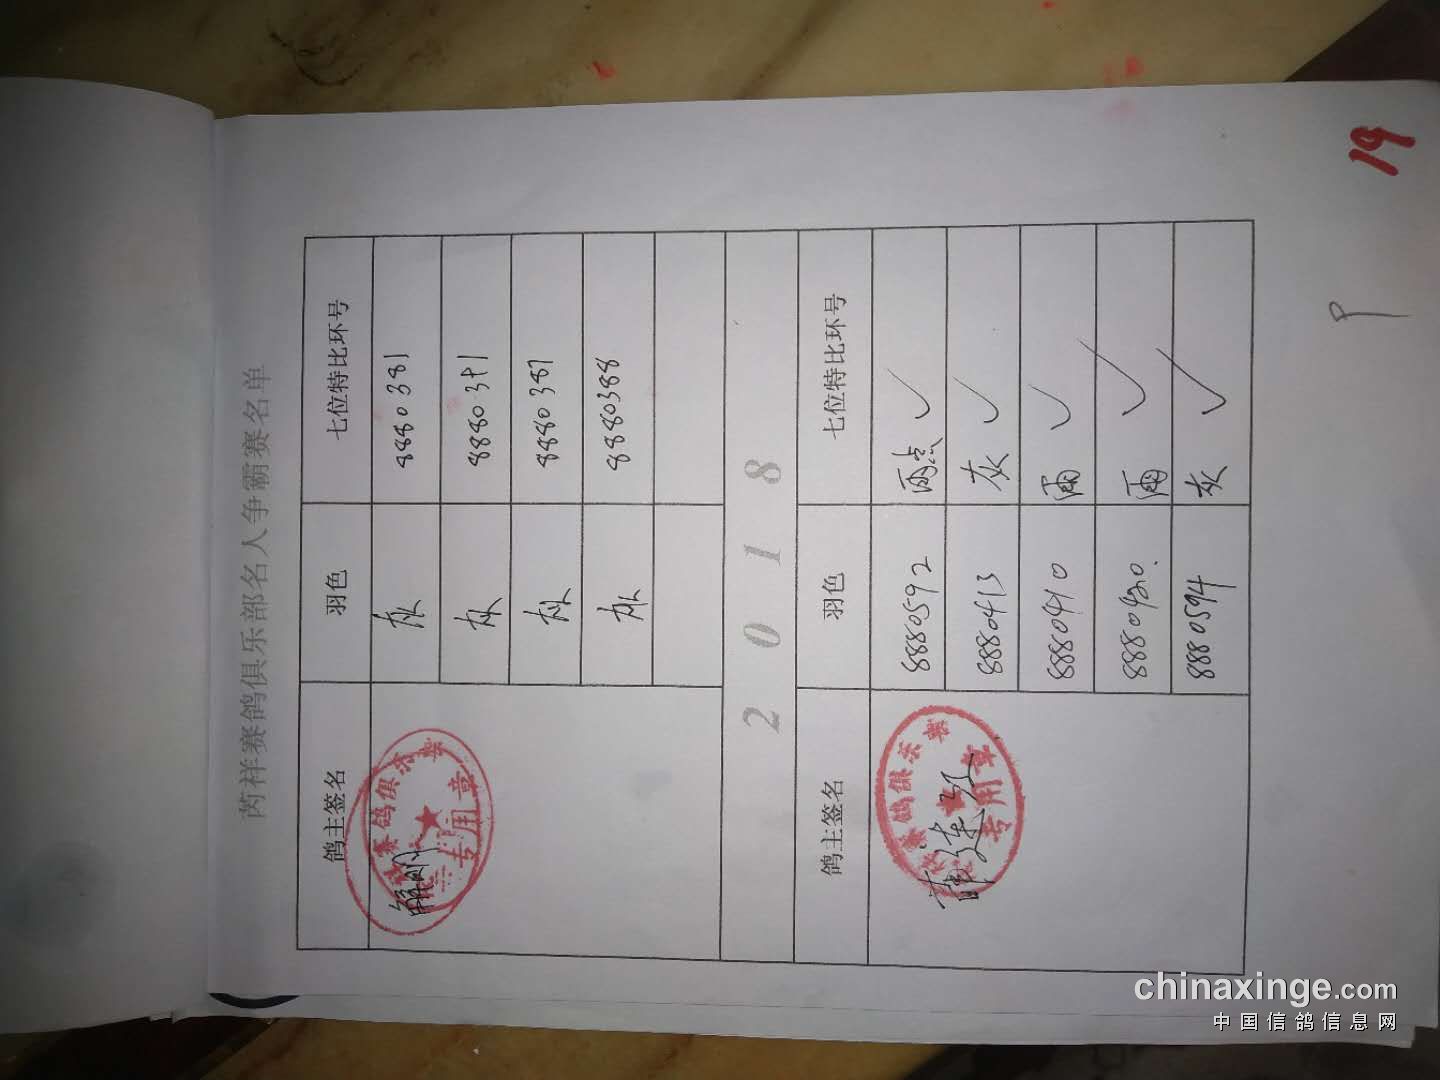 19
芮祥赛鸽俱乐部名人争霸赛名单
鸽主签名 羽色 七位特比环号
灰 8880381
灰 8880391
灰 8880387
灰 8880388
专用章
2018
鸽主签名 羽色 七位特比环号
8880592 雨点 ✓
8880413 灰 ✓
8880410 雨 ✓
8880420. 雨 ✓
8880594 灰 ✓
赛鸽俱乐部
专用章
chinaxinge.com
中国信鸽信息网